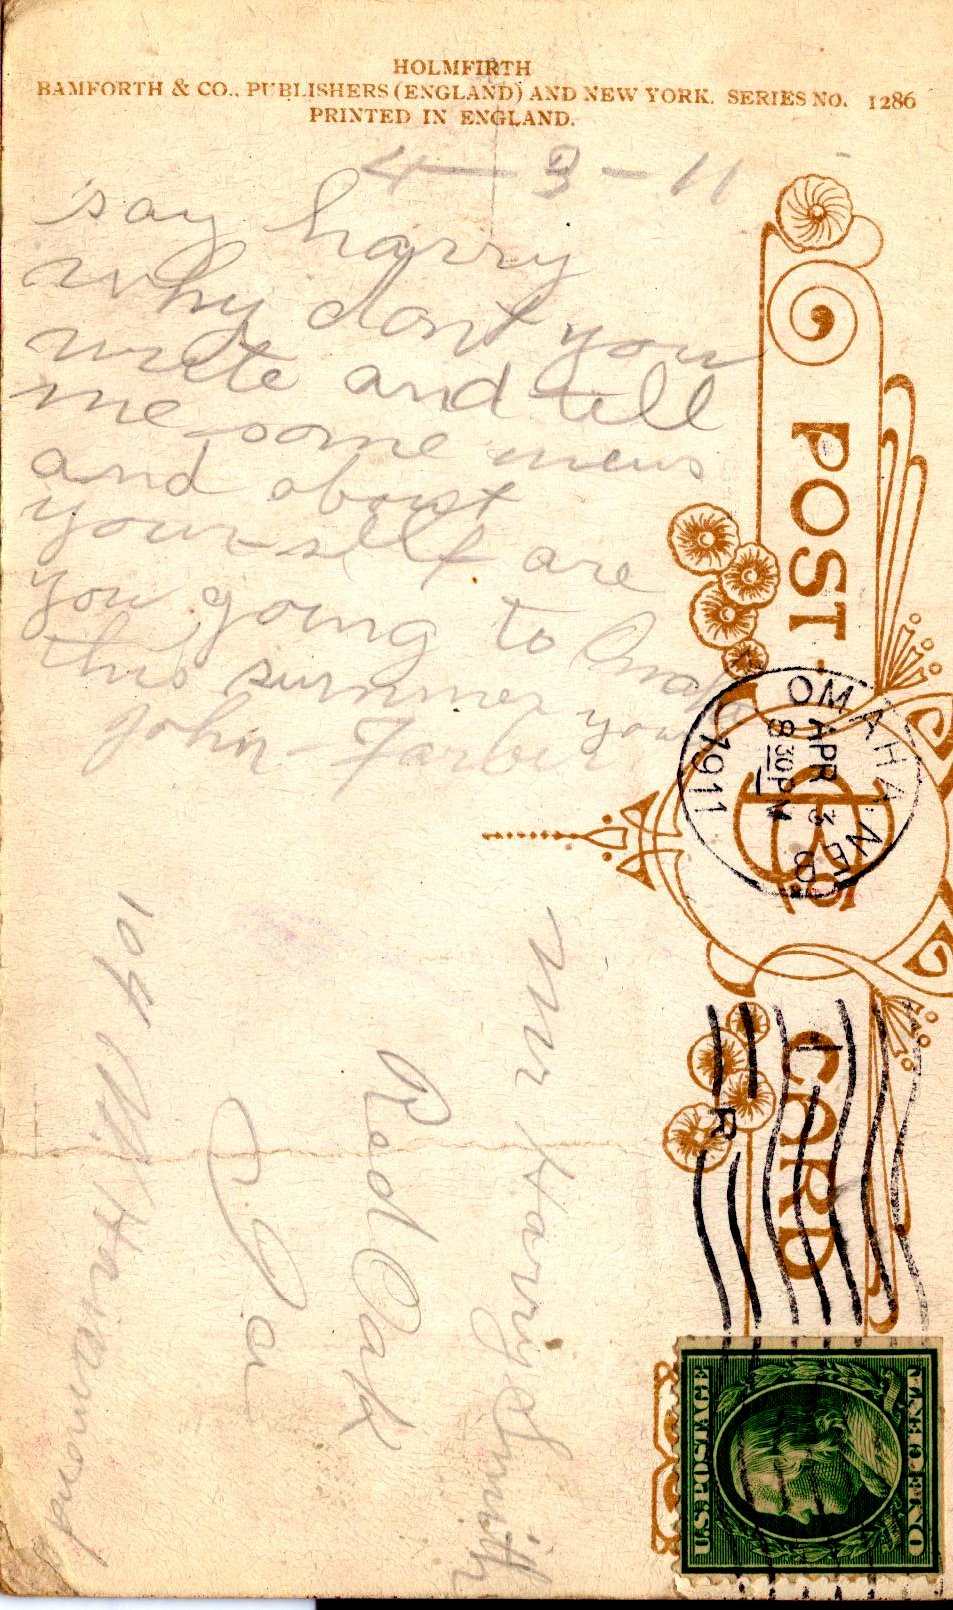 HOLMFIRTH
BAMFORTH & CO., PUBLISHERS (ENGLAND) AND NEW YORK. SERIES NO. 1286
PRINTED IN ENGLAND.
4-3-11
say harry
why dont you
write and tell
me some news
and about
your-self are
you going to Omaha
this summer your
John Farber
POST CARD
OMAHA, NEB.
APR 3
8 30 PM
1911
R
U.S. POSTAGE
ONE CENT
Mr Harry Smith
Red Oak
Ia
109 Hammond